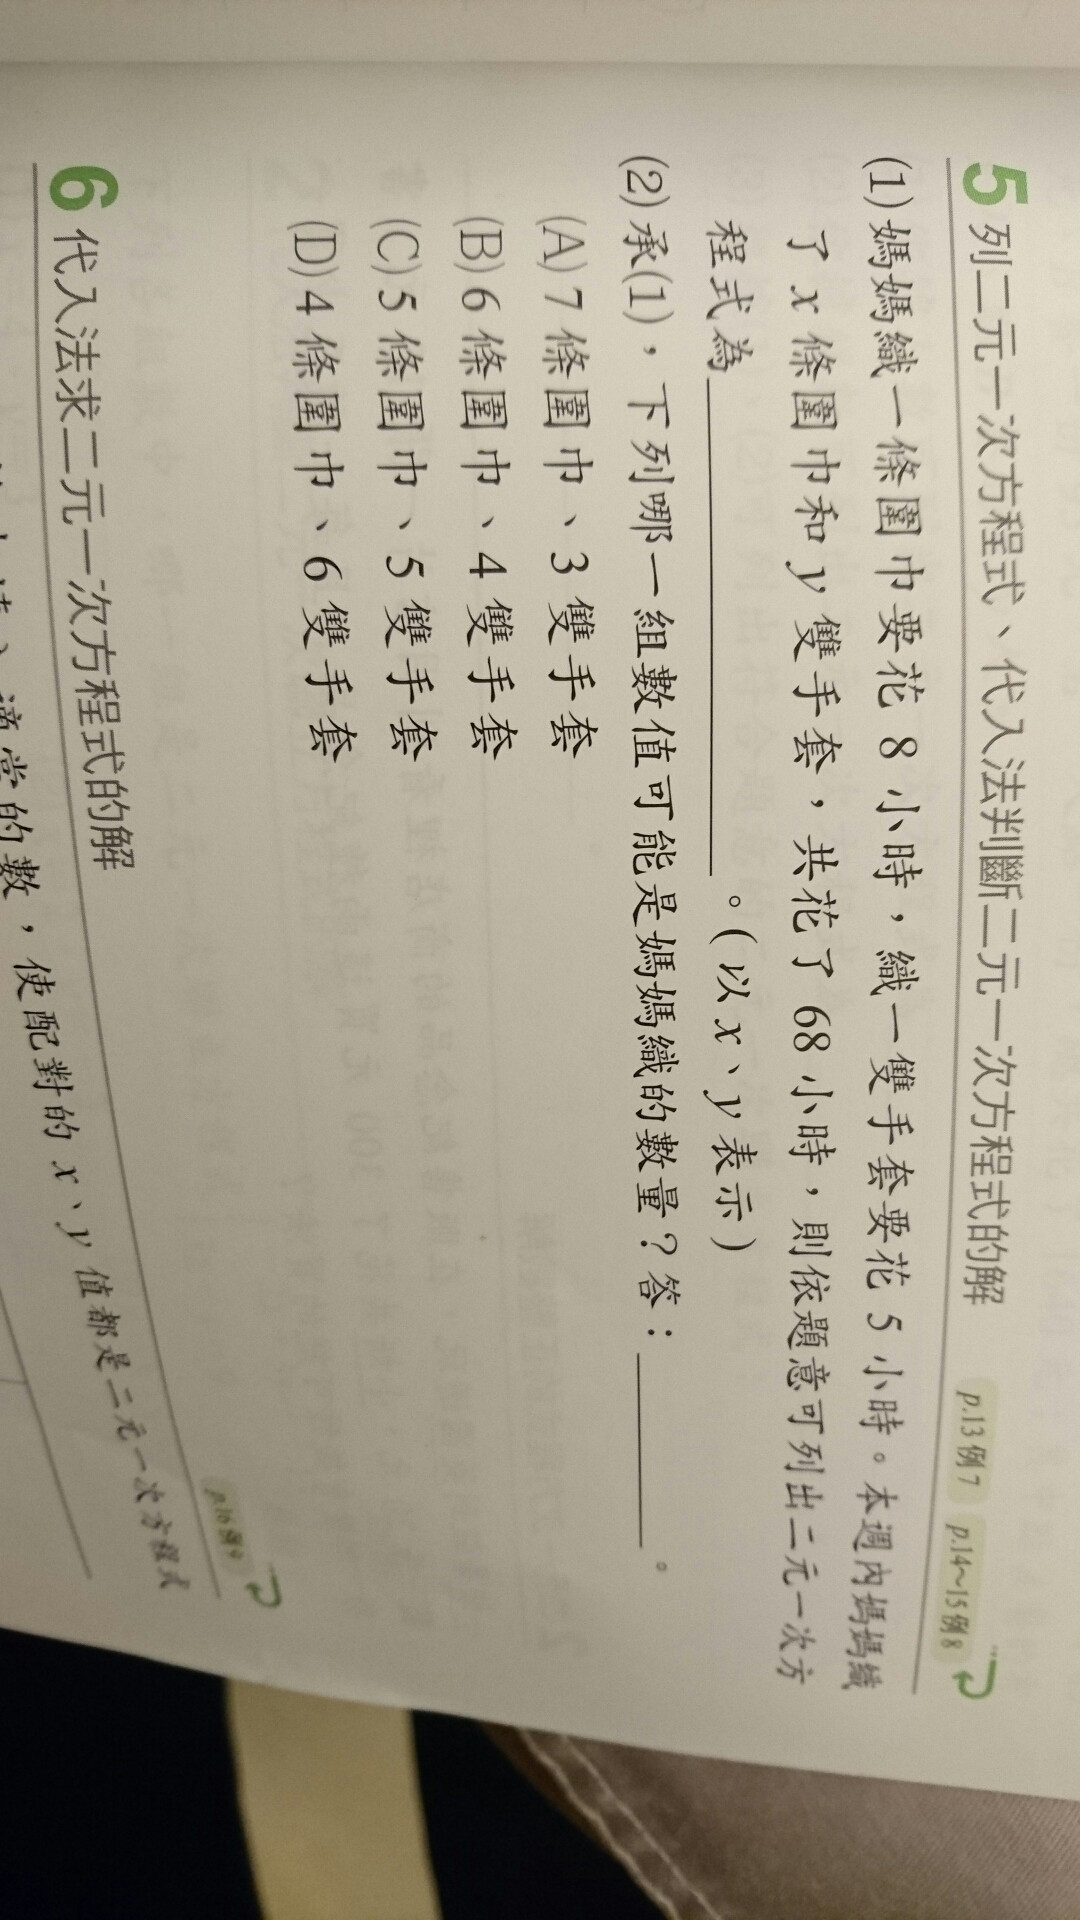 5 列二元一次方程式、代入法判斷二元一次方程式的解 p.13 例 7 p.14~15 例 8
(1) 媽媽織一條圍巾要花 8 小時，織一雙手套要花 5 小時。本週內媽媽織
了 x 條圍巾和 y 雙手套，共花了 68 小時，則依題意可列出二元一次方
程式為＿＿＿＿＿＿＿＿。(以 x、y 表示)
(2) 承(1)，下列哪一組數值可能是媽媽織的數量？答：＿＿＿＿。
(A) 7 條圍巾、3 雙手套
(B) 6 條圍巾、4 雙手套
(C) 5 條圍巾、5 雙手套
(D) 4 條圍巾、6 雙手套
6 代入法求二元一次方程式的解 p.16 例 9
適當的數，使配對的 x、y 值都是二元一次方程式